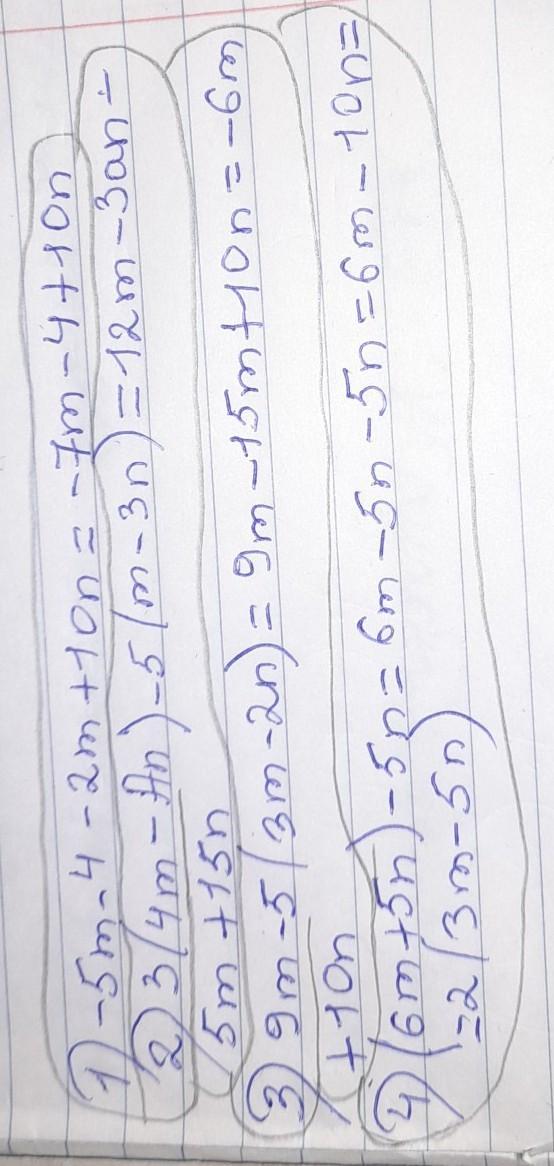 1) -5m-4-2m+10n = -7m-4+10n
2) 3(4m - n) -5(m-3n) = 12m-30n-
5m+15n
3) 9m-5(3m-2n) = 9m-15m+10n = -6m
+10n
4) (6m+5n)-5n = 6m-5n-5n = 6m-10n=
=2(3m-5n)